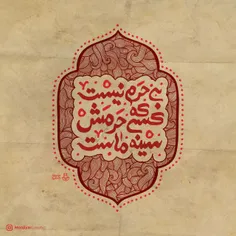 بی حرم نیست
کسی که حرمش
سینه ماست